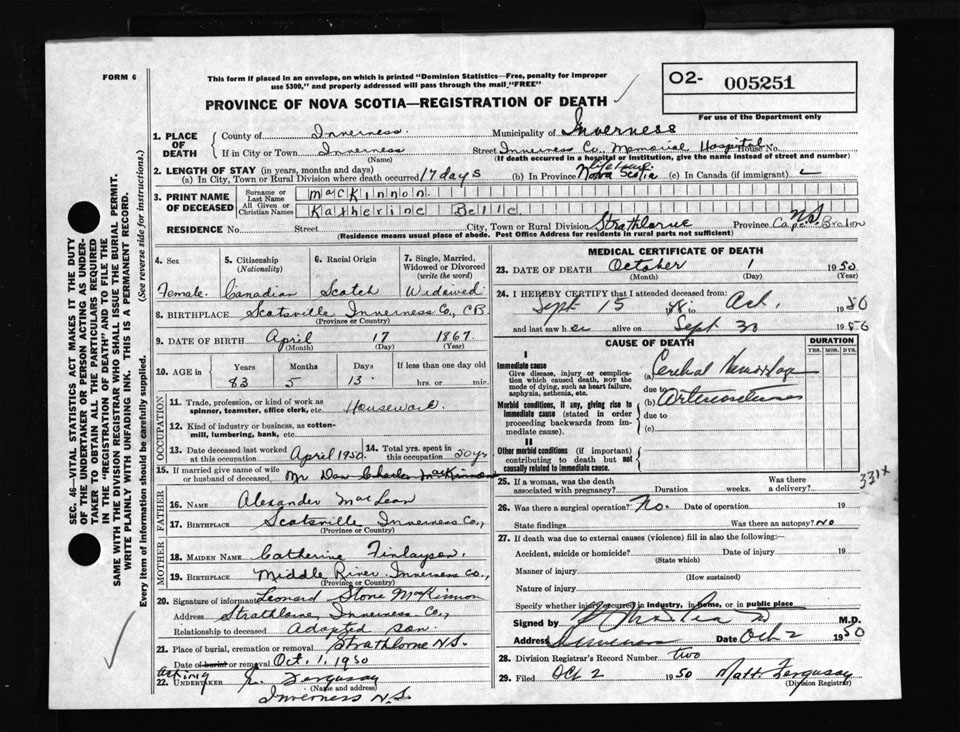 FORM 6
This form if placed in an envelope, on which is printed "Dominion Statistics—Free, penalty for improper
use $300," and properly addressed will pass through the mail "FREE"
O2- 005251
For use of the Department only
PROVINCE OF NOVA SCOTIA—REGISTRATION OF DEATH
1. PLACE OF DEATH
County of Inverness. Municipality of Inverness
If in City or Town Inverness Street Inverness Co. Memorial Hospital House No.
(Name) (If death occurred in a hospital or institution, give the name instead of street and number)
2. LENGTH OF STAY (in years, months and days)
(a) In City, Town or Rural Division where death occurred 17 days (b) In Province Nova Scotia (c) In Canada (if immigrant)
3. PRINT NAME OF DECEASED
Surname or Last Name MacKinnon
All Given or Christian Names Katherine Belle
RESIDENCE No. Street City, Town or Rural Division Strathlorne Province N.S. Cape Breton
(Residence means usual place of abode. Post Office Address for residents in rural parts not sufficient)
4. Sex
Female.
5. Citizenship (Nationality)
Canadian
6. Racial Origin
Scotch
7. Single, Married, Widowed or Divorced (write the word)
Widowed
8. BIRTHPLACE Scotsville Inverness Co., CB
(Province or Country)
9. DATE OF BIRTH April 17 1867.
(Month) (Day) (Year)
10. AGE in Years Months Days If less than one day old
83 5 13 hrs. or min.
OCCUPATION
11. Trade, profession, or kind of work as
spinner, teamster, office clerk, etc. Housework.
12. Kind of industry or business, as cotton-
mill, lumbering, bank, etc.
13. Date deceased last worked at this occupation April 1950.
14. Total yrs. spent in this occupation 50 yrs
15. If married give name of wife
or husband of deceased Mr Dan Charles MacKinnon
FATHER
16. NAME Alexander MacLean
17. BIRTHPLACE Scotsville Inverness Co.,
MOTHER
18. MAIDEN NAME Catherine Finlayson.
19. BIRTHPLACE Middle River Inverness Co.,
(Province or Country)
20. Signature of informant Leonard Stone McKinnon
Address Strathlorne, Inverness Co.,
Relationship to deceased Adopted son.
21. Place of burial, cremation or removal Strathlorne N.S.
Date of burial or removal Oct. 1, 1950
Acting
22. UNDERTAKER Fergusay
(Name and address)
Inverness N.S.
MEDICAL CERTIFICATE OF DEATH
23. DATE OF DEATH October 1 1950
(Month) (Day) (Year)
24. I HEREBY CERTIFY that I attended deceased from:
Sept 15 Oct. 1 1950
and last saw her alive on Sept 30
CAUSE OF DEATH
DURATION
YRS. MOS. DYS.
I
Immediate cause
Give disease, injury or complica-
tion which caused death, not the
mode of dying, such as heart failure,
asphyxia, asthenia, etc.
(a) Cerebral Hemorrhage
due to
(b) Arteriosclerosis
due to
(c)
Morbid conditions, if any, giving rise to
immediate cause (stated in order
proceeding backwards from im-
mediate cause).
II
Other morbid conditions (if important)
contributing to death but not
causally related to immediate cause.
331X
25. If a woman, was the death
associated with pregnancy? Duration weeks. Was there a delivery?
26. Was there a surgical operation? No. Date of operation 19
State findings Was there an autopsy? No
27. If death was due to external causes (violence) fill in also the following:—
Accident, suicide or homicide? Date of injury 19
(State which)
Manner of injury
(How sustained)
Nature of injury
Specify whether injury occurred in industry, in home, or in public place
Signed by M.D.
Address Inverness Date Oct 2 1950
28. Division Registrar's Record Number two
29. Filed Oct 2 1950 Matt. Fergusay
(Division Registrar)
SEC. 46—VITAL STATISTICS ACT MAKES IT THE DUTY
OF THE UNDERTAKER OR PERSON ACTING AS UNDER-
TAKER TO OBTAIN ALL THE PARTICULARS REQUIRED
IN THE "REGISTRATION OF DEATH" AND TO FILE THE
SAME WITH THE DIVISION REGISTRAR WHO SHALL ISSUE THE BURIAL PERMIT.
WRITE PLAINLY WITH UNFADING INK. THIS IS A PERMANENT RECORD.
Every item of information should be carefully supplied. (See reverse side for instructions.)